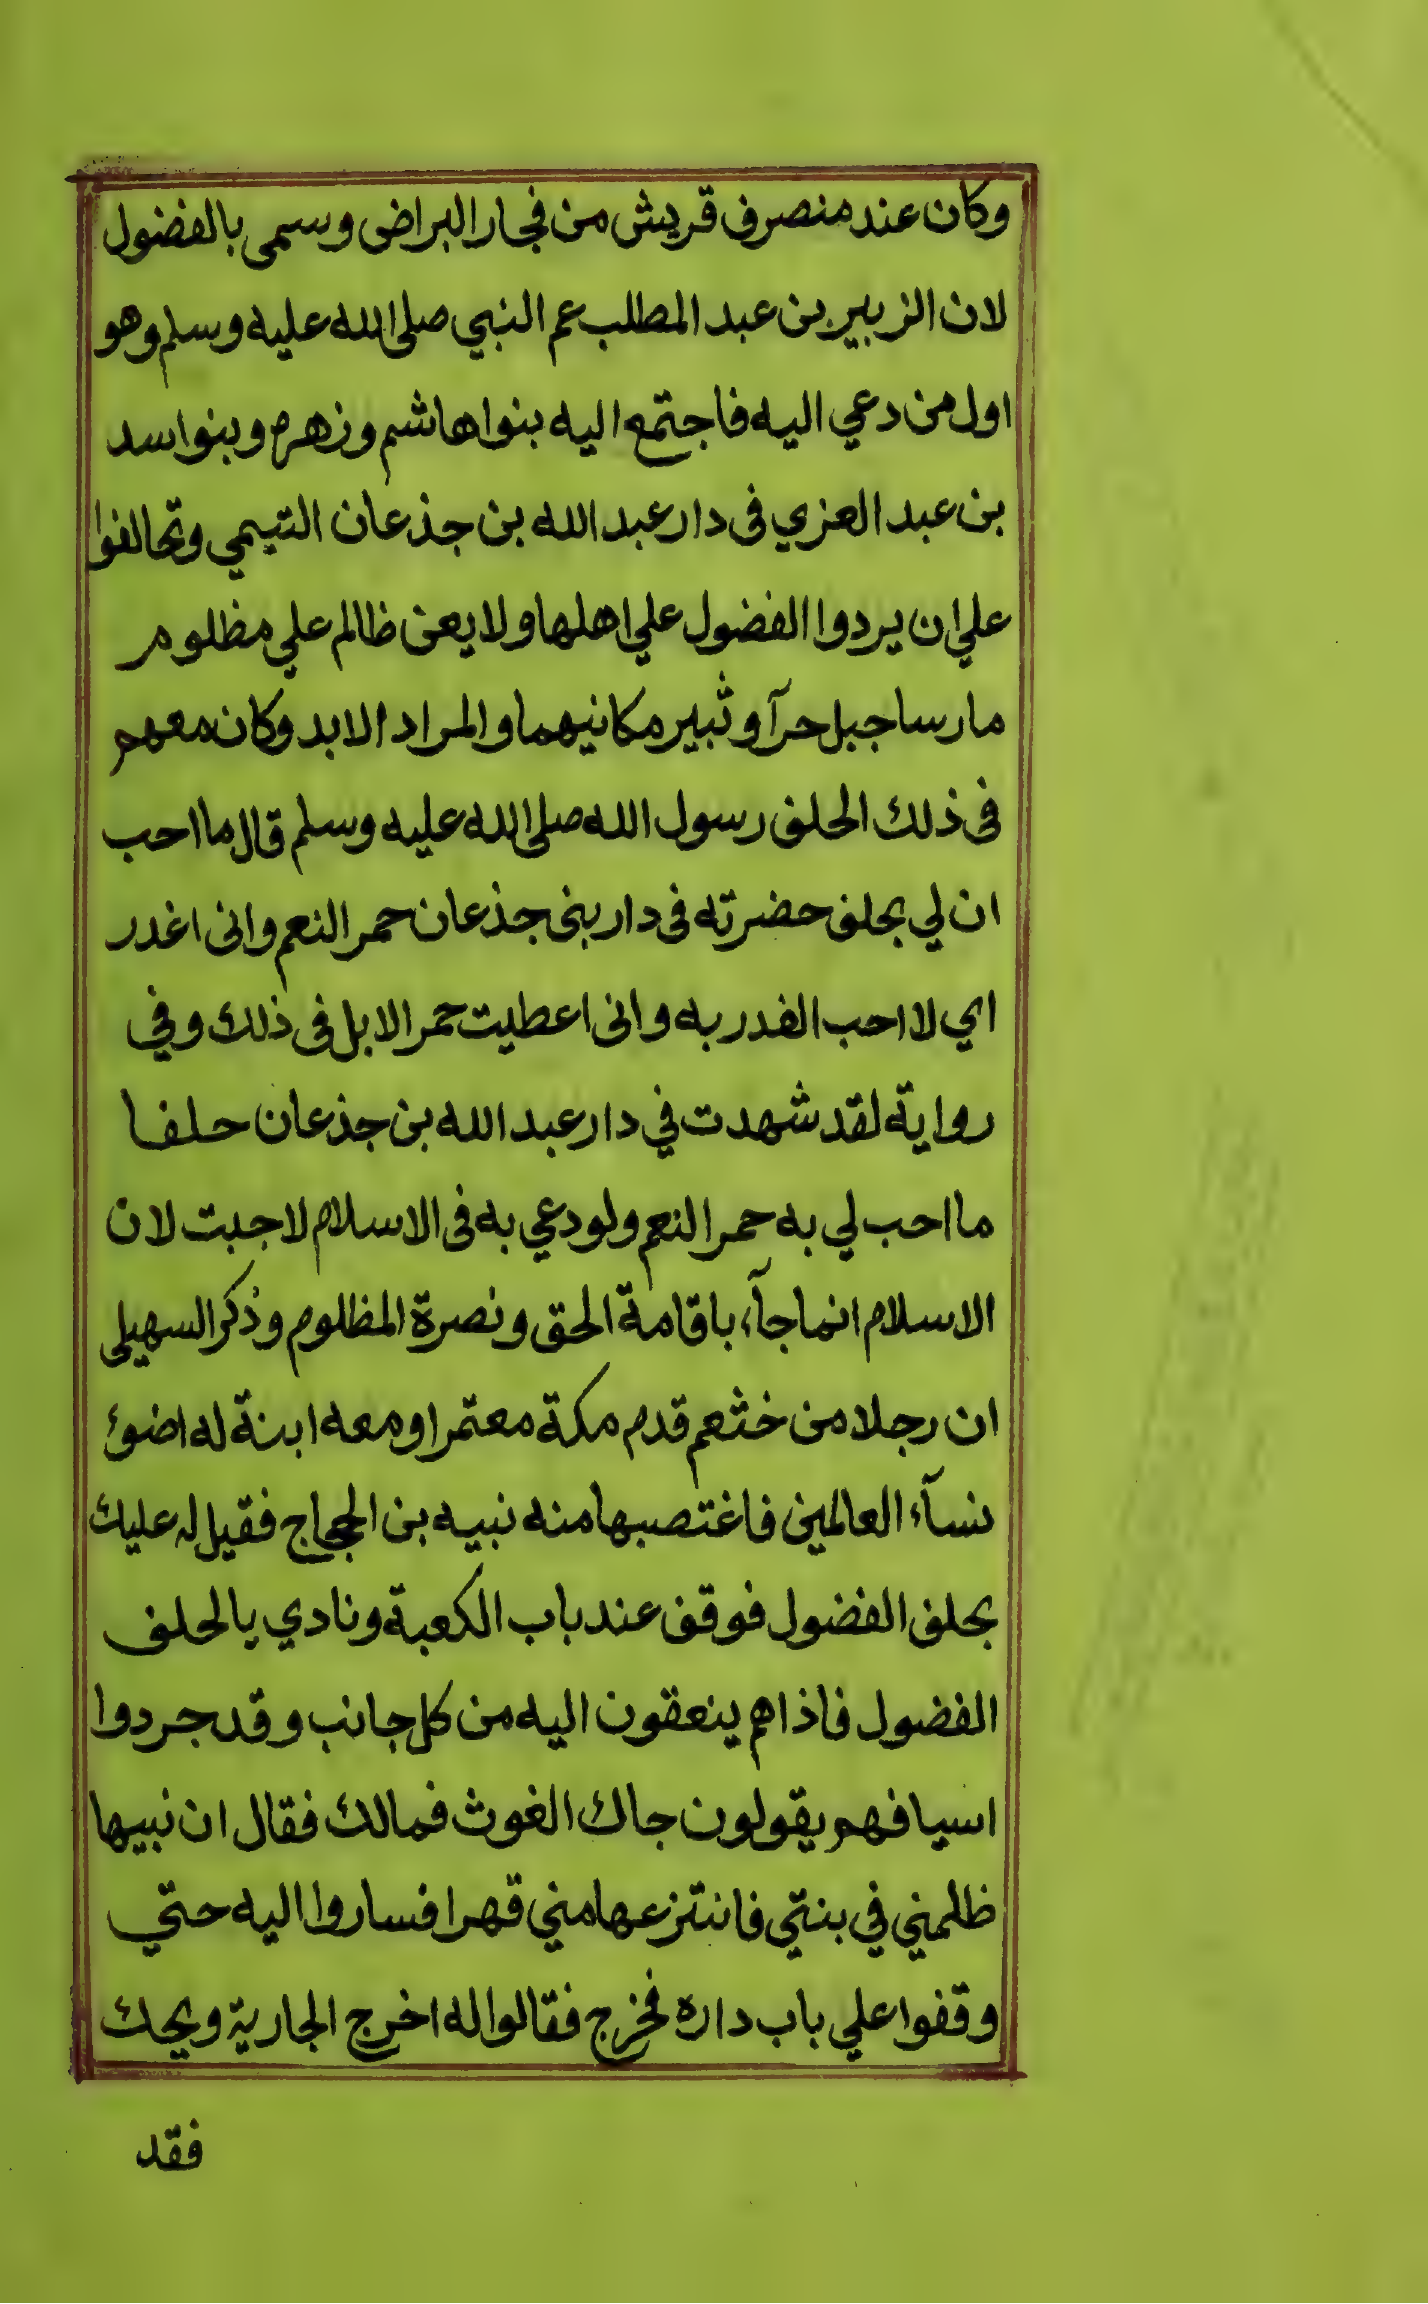 وكان عند منصرف قريش من فجار البراض وسمى بالفضول
لان الزبير بن عبد المطلب عم النبي صلى الله عليه وسلم وهو
اول من دعي اليه فاجتمع اليه بنوا هاشم وزهره وبنوا سد
بن عبد العزي فى دار عبد الله بن جذعان التيمي وتحالفوا
علي ان يردوا الفضول علي اهلها ولا يعن ظالم علي مظلوم
مارسا جبل حرآ وثبير مكانيهما والمراد الابد وكان معهم
فى ذلك الحلف رسول الله صلى الله عليه وسلم قال ما احب
ان لي بحلف حضرته فى دار بنى جذعان حمر النعم وانى اغدر
اي لا احب الغدر به وانى اعطيت حمر الابل فى ذلك وفي
رواية لقد شهدت في دار عبد الله بن جذعان حلفا
ما احب لي به حمر النعم ولو دعي به فى الاسلام لاجبت لان
الاسلام انما جآء باقامة الحق ونصرة المظلوم وذكر السهيلى
ان رجلا من خثعم قدم مكة معتمرا ومعه ابنة له اضوئ
نسآء العالمين فاغتصبها منه نبيه بن الحجاج فقيل له عليك
بحلف الفضول فوقف عند باب الكعبة ونادي يالحلف
الفضول فاذا هم ينعقون اليه من كل جانب وقد جردوا
اسيافهم يقولون جاك الغوث فمالك فقال ان نبيها
ظلمني في بنتي فانتزعها مني قهرا فساروا اليه حتي
وقفوا علي باب داره فخرج فقالوا له اخرج الجارية ويحك
فقد